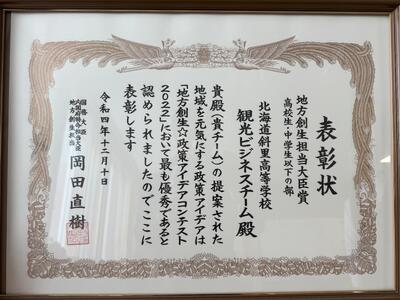 表彰状
地方創生担当大臣賞
高校生・中学生以下の部
北海道斜里高等学校
観光ビジネスチーム 殿
貴殿(貴チーム)の提案された
地域を元気にする政策アイデアは
「地方創生☆政策アイデアコンテスト
2022」において最も優秀であると
認められましたのでここに
表彰します
令和四年十二月十日
国務大臣
内閣府特命担当大臣
地方創生担当
岡田直樹